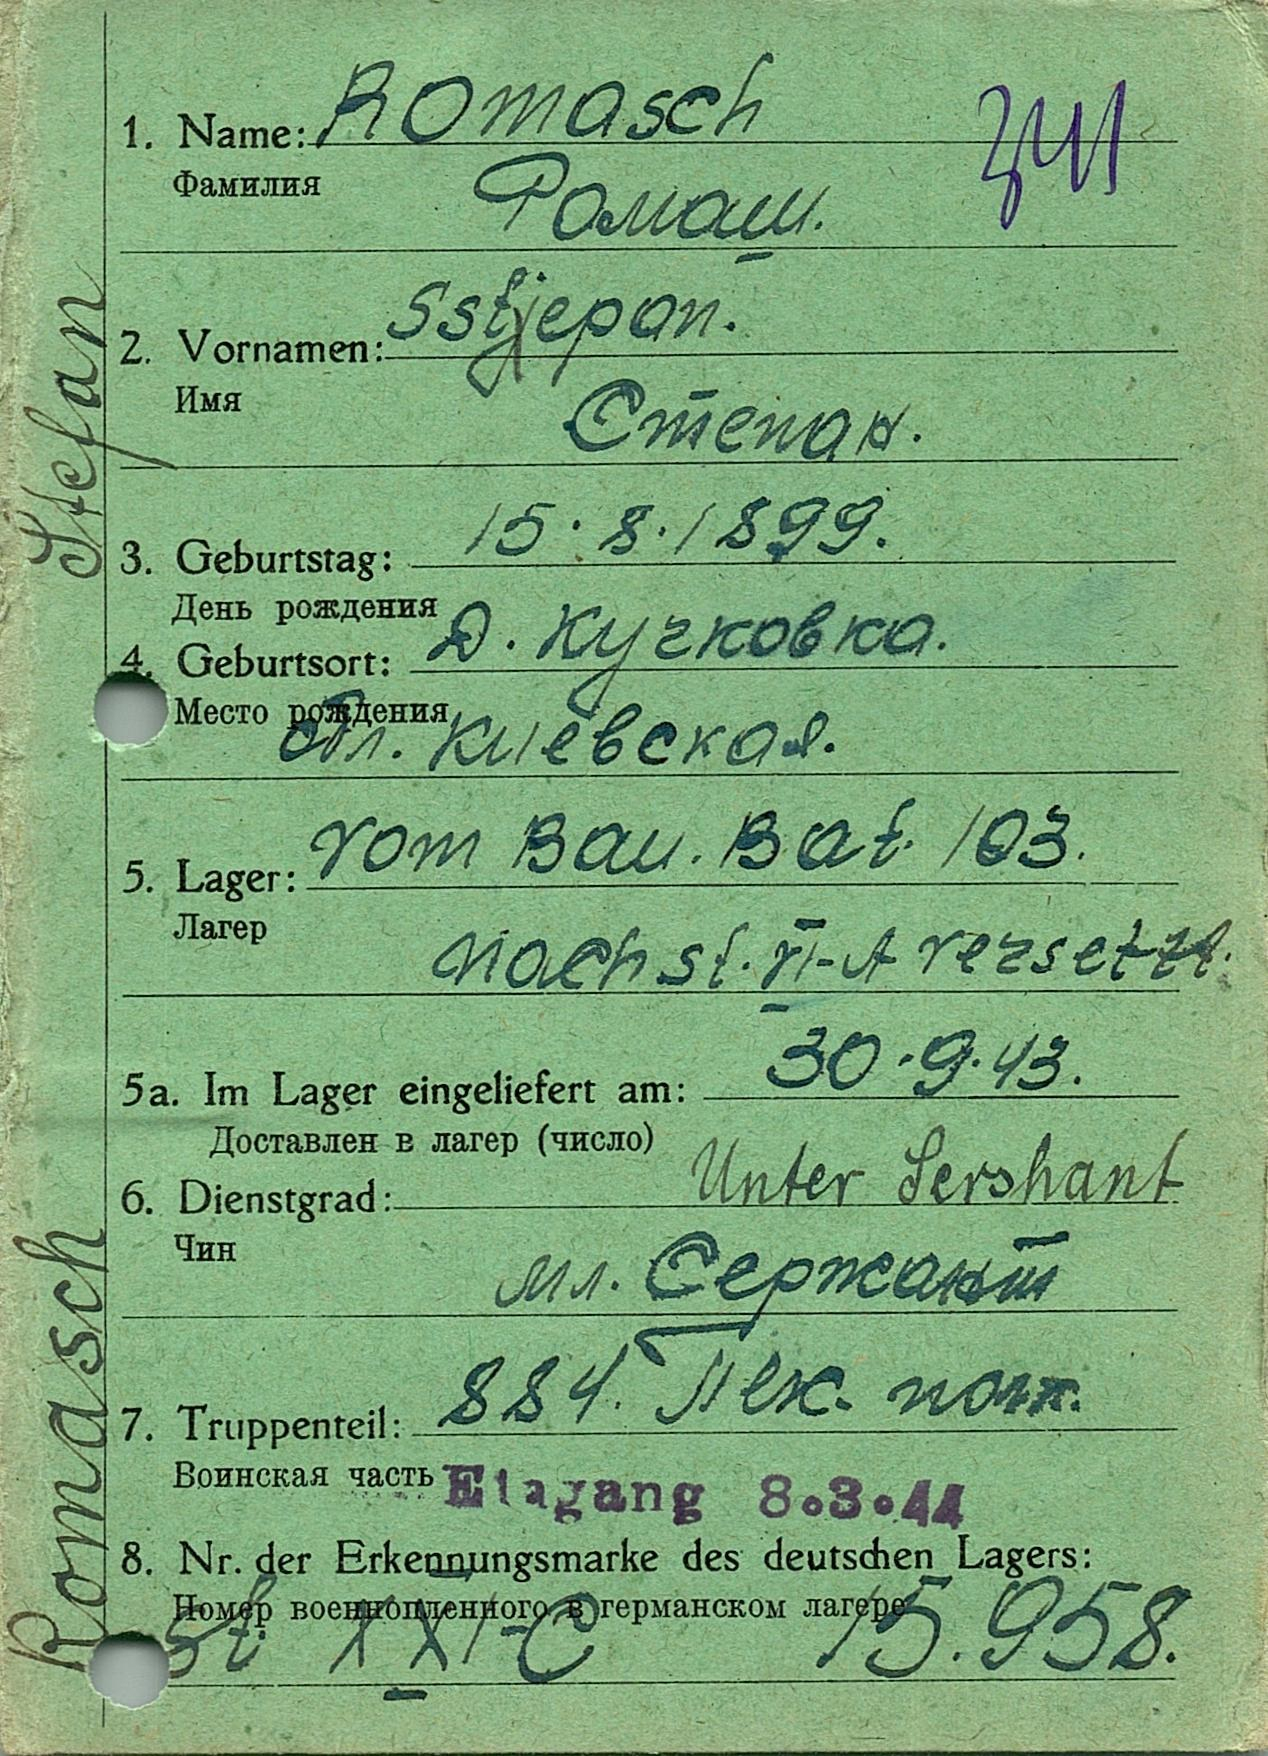 1. Name: Romasch
341
Фамилия
Ромаш.
2. Vornamen: Sstjepan.
Имя
Степан.
3. Geburtstag: 15.8.1899.
День рождения
4. Geburtsort: Д. Кучковка.
Место рождения
обл. Киевская.
5. Lager: vom Bau. Bat. 103.
Лагер
nach st. VI-A versetzt.
5a. Im Lager eingeliefert am: 30.9.43.
Доставлен в лагер (число)
6. Dienstgrad: Unter Sershant
Чин
мл. Сержант
7. Truppenteil: 884. Пех. полк.
Воинская часть
Eingang 8.3.44
8. Nr. der Erkennungsmarke des deutschen Lagers:
Номер военнопленного в германском лагере
St. XXI-C 15.958.
Romasch Stefan